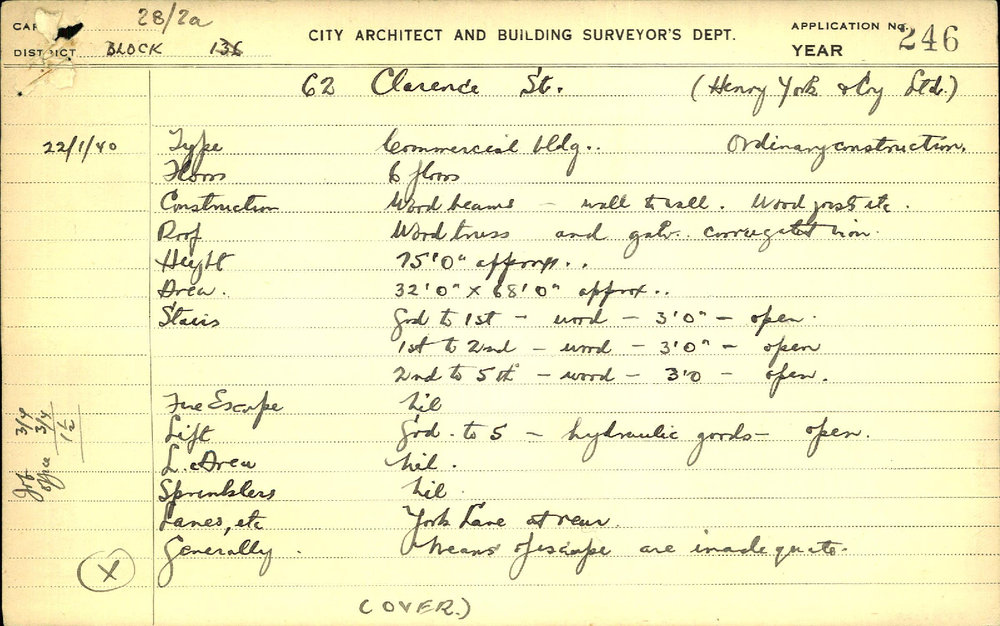 28/2a
CITY ARCHITECT AND BUILDING SURVEYOR'S DEPT.
APPLICATION No. 246
DISTRICT BLOCK 136
YEAR
62 Clarence St. (Henry York & Coy Ltd.)
22/1/40 Type Commercial bldg.. Ordinary construction.
Floors 6 floors
Construction Wood beams - wall to wall. Wood posts etc.
Roof Wood truss and galv. corrugated iron.
Height 75'0" approx..
Area. 32'0" x 68'0" approx..
Stairs Grd to 1st - wood - 3'0" - open.
1st to 2nd - wood - 3'0" - open
2nd to 5th - wood - 3'0 - open.
Fire Escape Nil
Lift Grd. to 5 - hydraulic goods - open.
L. Area Nil.
Sprinklers Nil.
Lanes, etc York Lane at rear.
Generally. Means of escape are inadequate.
Job 3/4
office 3/4
1 1/2
X
(OVER.)